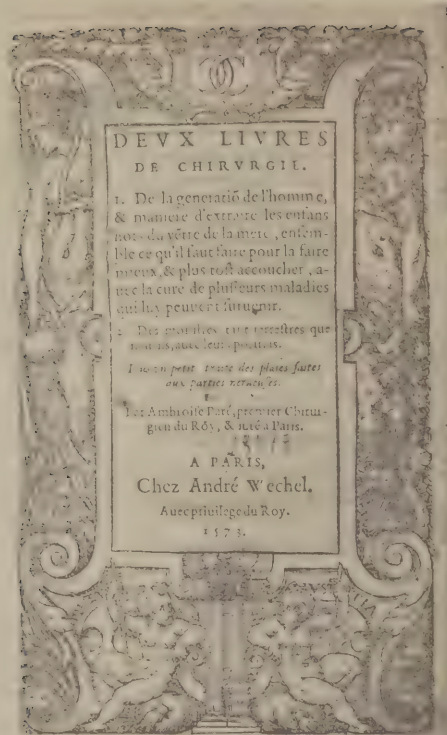 DEVX LIVRES
DE CHIRVRGIE.
1. De la generatiō de l'homme,
& maniere d'extraire les enfans
hors du vētre de la mere, ensem-
ble ce qu'il faut faire pour la faire
mieux, & plus tost accoucher, a-
uec la cure de plusieurs maladies
qui luy peuuent suruenir.
2. Des monstres tant terrestres que
marins, auec leurs portrais.
petit traité des plaies faites
aux parties nerueuses.
Par Ambroise Paré, premier Chirur-
gien du Roy, & iuré à Paris.
A PARIS,
Chez André Wechel.
Auec priuilege du Roy.
1573.